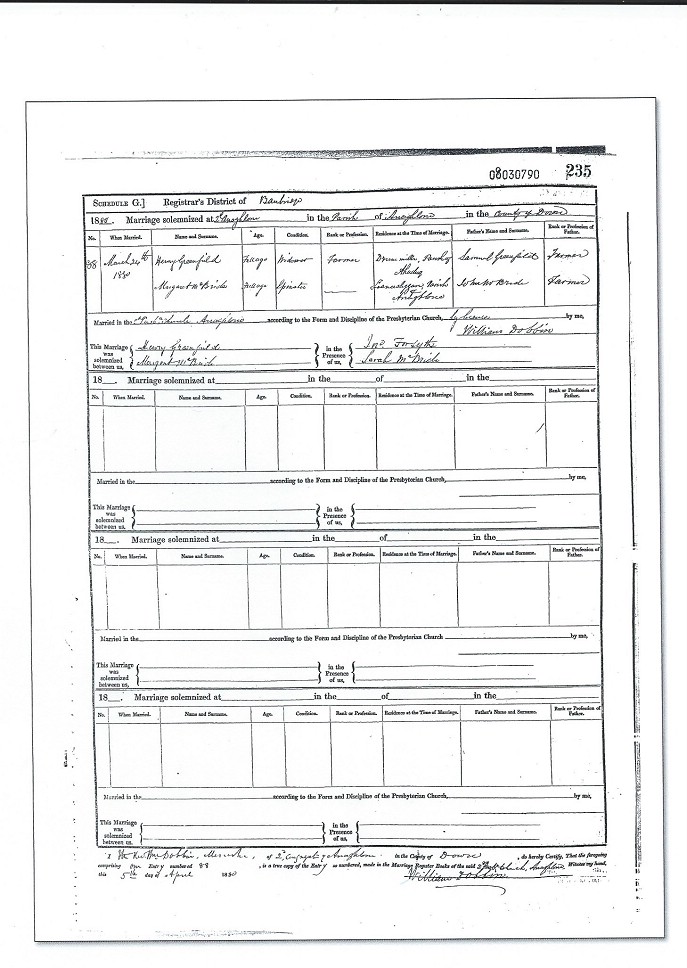 08030790 235
SCHEDULE G.] Registrar's District of Banbridge
1880. Marriage solemnized at Anaghlone in the Parish of Anaghlone in the County of Down
No. When Married. Name and Surname. Age. Condition. Rank or Profession. Residence at the Time of Marriage. Father's Name and Surname. Rank or Profession of Father.
88 March 24th 1880 Henry Greenfield Full age Widower Farmer Samuel Greenfield Farmer
Margaret McBride Full age Spinster John McBride Farmer
Married in the according to the Form and Discipline of the Presbyterian Church, by licence by me,
William Dobbin
This Marriage was solemnized between us, Henry Greenfield Margaret McBride in the Presence of us, Jno Forsythe Sarah McBride
18__. Marriage solemnized at in the of in the
No. When Married. Name and Surname. Age. Condition. Rank or Profession. Residence at the Time of Marriage. Father's Name and Surname. Rank or Profession of Father.
Married in the according to the Form and Discipline of the Presbyterian Church, by me,
This Marriage was solemnized between us, in the Presence of us,
18__. Marriage solemnized at in the of in the
No. When Married. Name and Surname. Age. Condition. Rank or Profession. Residence at the Time of Marriage. Father's Name and Surname. Rank or Profession of Father.
Married in the according to the Form and Discipline of the Presbyterian Church by me,
This Marriage was solemnized between us, in the Presence of us,
18__. Marriage solemnized at in the of in the
No. When Married. Name and Surname. Age. Condition. Rank or Profession. Residence at the Time of Marriage. Father's Name and Surname. Rank or Profession of Father.
Married in the according to the Form and Discipline of the Presbyterian Church, by me,
This Marriage was solemnized between us, in the Presence of us,
I the Revd Wm Dobbin, Minister, of 2nd Anaghlone in the County of Down, do hereby Certify, That the foregoing
comprising One Entry number of 88, is a true copy of the Entry as numbered, made in the Marriage Register Books of the said Church, Anaghlone Witness my hand,
this 5th day of April 1880 William Dobbin